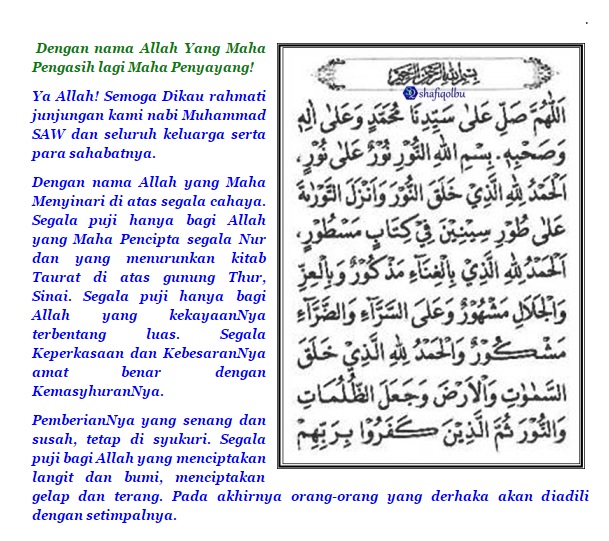 Dengan nama Allah Yang Maha
Pengasih lagi Maha Penyayang!
Ya Allah! Semoga Dikau rahmati
junjungan kami nabi Muhammad
SAW dan seluruh keluarga serta
para sahabatnya.
Dengan nama Allah yang Maha
Menyinari di atas segala cahaya.
Segala puji hanya bagi Allah
yang Maha Pencipta segala Nur
dan yang menurunkan kitab
Taurat di atas gunung Thur,
Sinai. Segala puji hanya bagi
Allah yang kekayaanNya
terbentang luas. Segala
Keperkasaan dan KebesaranNya
amat benar dengan
KemasyhuranNya.
PemberianNya yang senang dan
susah, tetap di syukuri. Segala
puji bagi Allah yang menciptakan
langit dan bumi, menciptakan
gelap dan terang. Pada akhirnya orang-orang yang derhaka akan diadili
dengan setimpalnya.
بِسْمِ اللهِ الرَّحْمٰنِ الرَّحِيْمِ
shafiqolbu
اَللّٰهُمَّ صَلِّ عَلٰى سَيِّدِنَا مُحَمَّدٍ وَعَلٰى اٰلِهٖ
وَصَحْبِهٖ. بِسْمِ اللهِ النُّوْرِ نُوْرٌ عَلٰى نُوْرٍ،
اَلْحَمْدُ لِلّٰهِ الَّذِيْ خَلَقَ النُّوْرَ وَاَنْزَلَ التَّوْرٰىةَ
عَلٰى طُوْرِ سِيْنِيْنَ فِيْ كِتَابٍ مَسْطُوْرٍ،
اَلْحَمْدُ لِلّٰهِ الَّذِيْ بِالْغِنَاءِ مَذْكُوْرٌ وَبِالْعِزِّ
وَالْجَلَالِ مَشْهُوْرٌ وَعَلَى السَّرَّآءِ وَالضَّرَّآءِ
مَشْكُوْرٌ وَالْحَمْدُ لِلّٰهِ الَّذِيْ خَلَقَ
السَّمٰوٰتِ وَالْاَرْضَ وَجَعَلَ الظُّلُمَاتِ
وَالنُّوْرَ ثُمَّ الَّذِيْنَ كَفَرُوْا بِرَبِّهِمْ